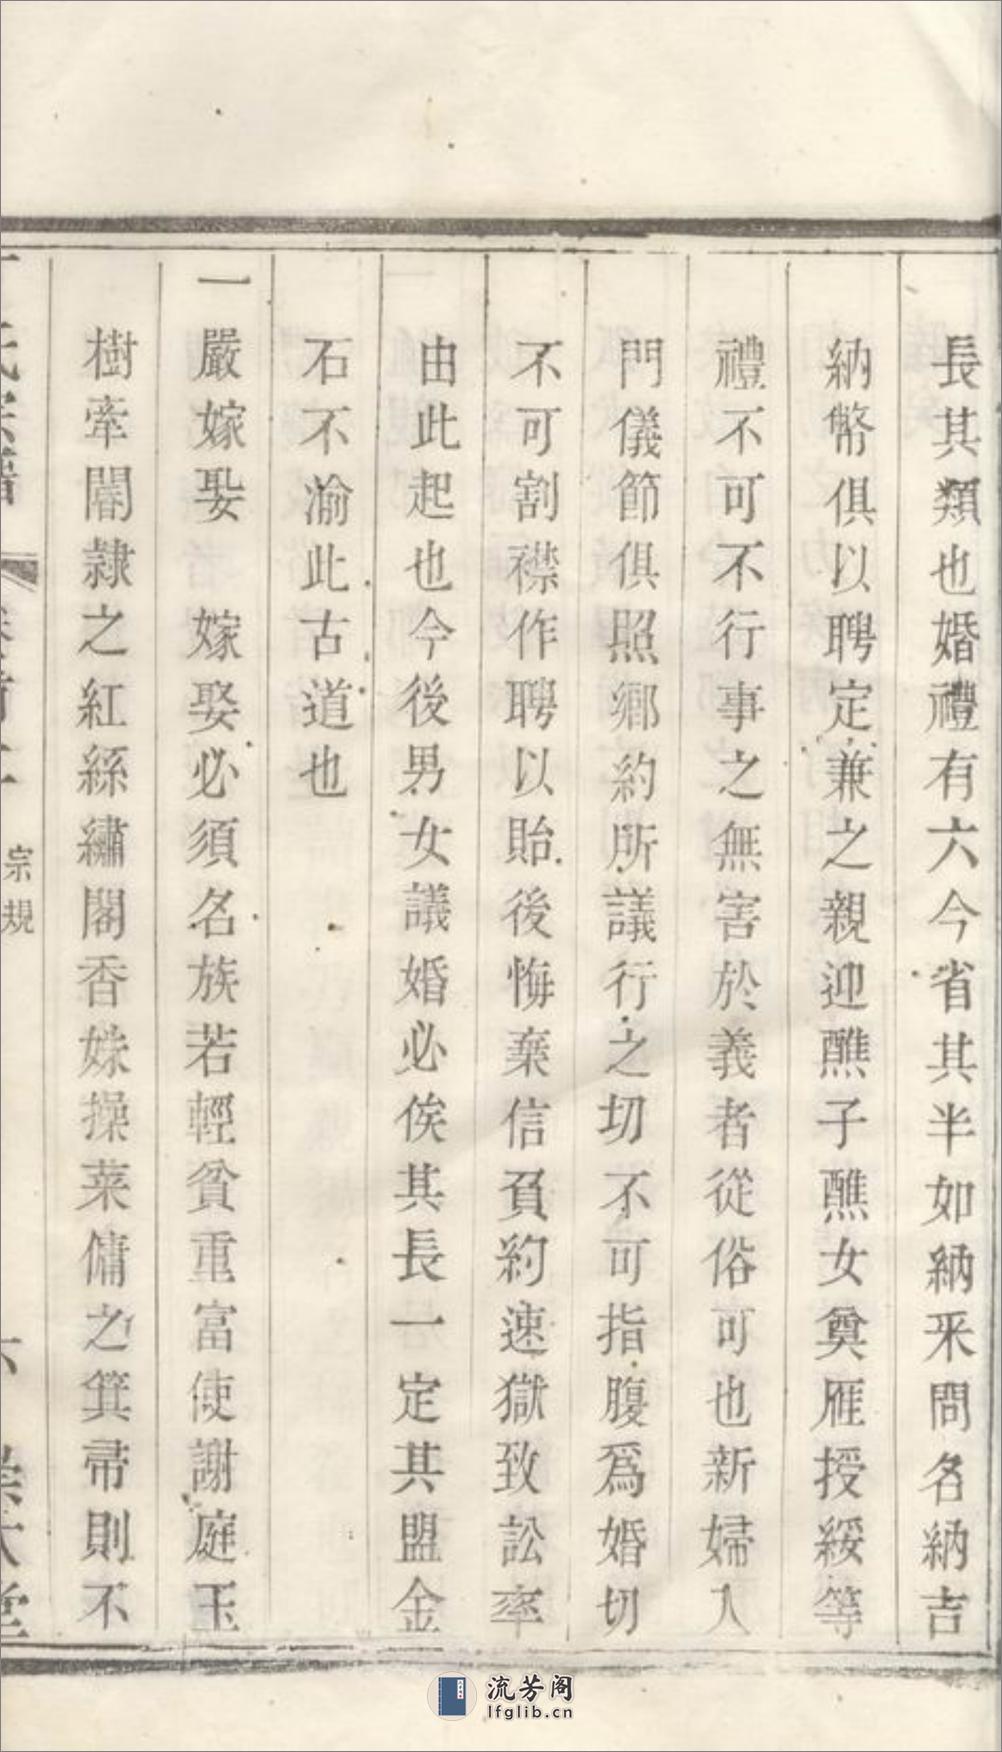 長其類也婚禮有六今省其半如納采問名納吉
納幣俱以聘定兼之親迎醮子醮女奠雁授綏等
禮不可不行事之無害於義者從俗可也新婦入
門儀節俱照鄉約所議行之切不可指腹爲婚切
不可割襟作聘以貽後悔棄信負約速獄致訟率
由此起也今後男女議婚必俟其長一定其盟金
石不渝此古道也
一嚴嫁娶 嫁娶必須名族若輕貧重富使謝庭玉
樹牽闒隸之紅絲繡閣香姝操菜傭之箕帚則不
宗規
流芳阁
lfglib.cn